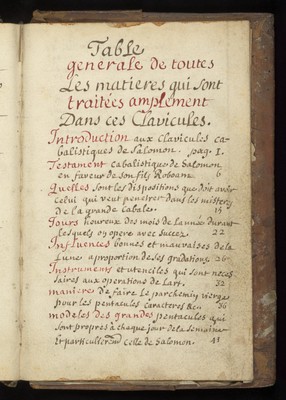 Table
generale de toutes
Les matieres qui sont
traitées amplement
Dans ces Clavicules.
Introduction aux Clavicules ca-
balistiques de Salomon. pag. 1.
Testament cabalistique de Salomon
en faveur de son fils Roboam. 6
Quelles sont les dispositions que doit avoir
celui qui veut penetrer dans les mitteres
de la grande Cabale. 15
Jours heureux des mois de lannée durant
lesquels on opere avec succez. 22
Influences bonnes et mauvaises de la
Lune aproportion de ses gradations. 26
Instruments et utenciles qui sont neces
saires aux operations de Lart. 32
maniere de faire Le parchemin vierge
pour les pentacules caracteres &c. 36
modeles des grandes pentacules qui
sont propres à chaque jour de la semaine
Et particulierem celle de Salomon. 41